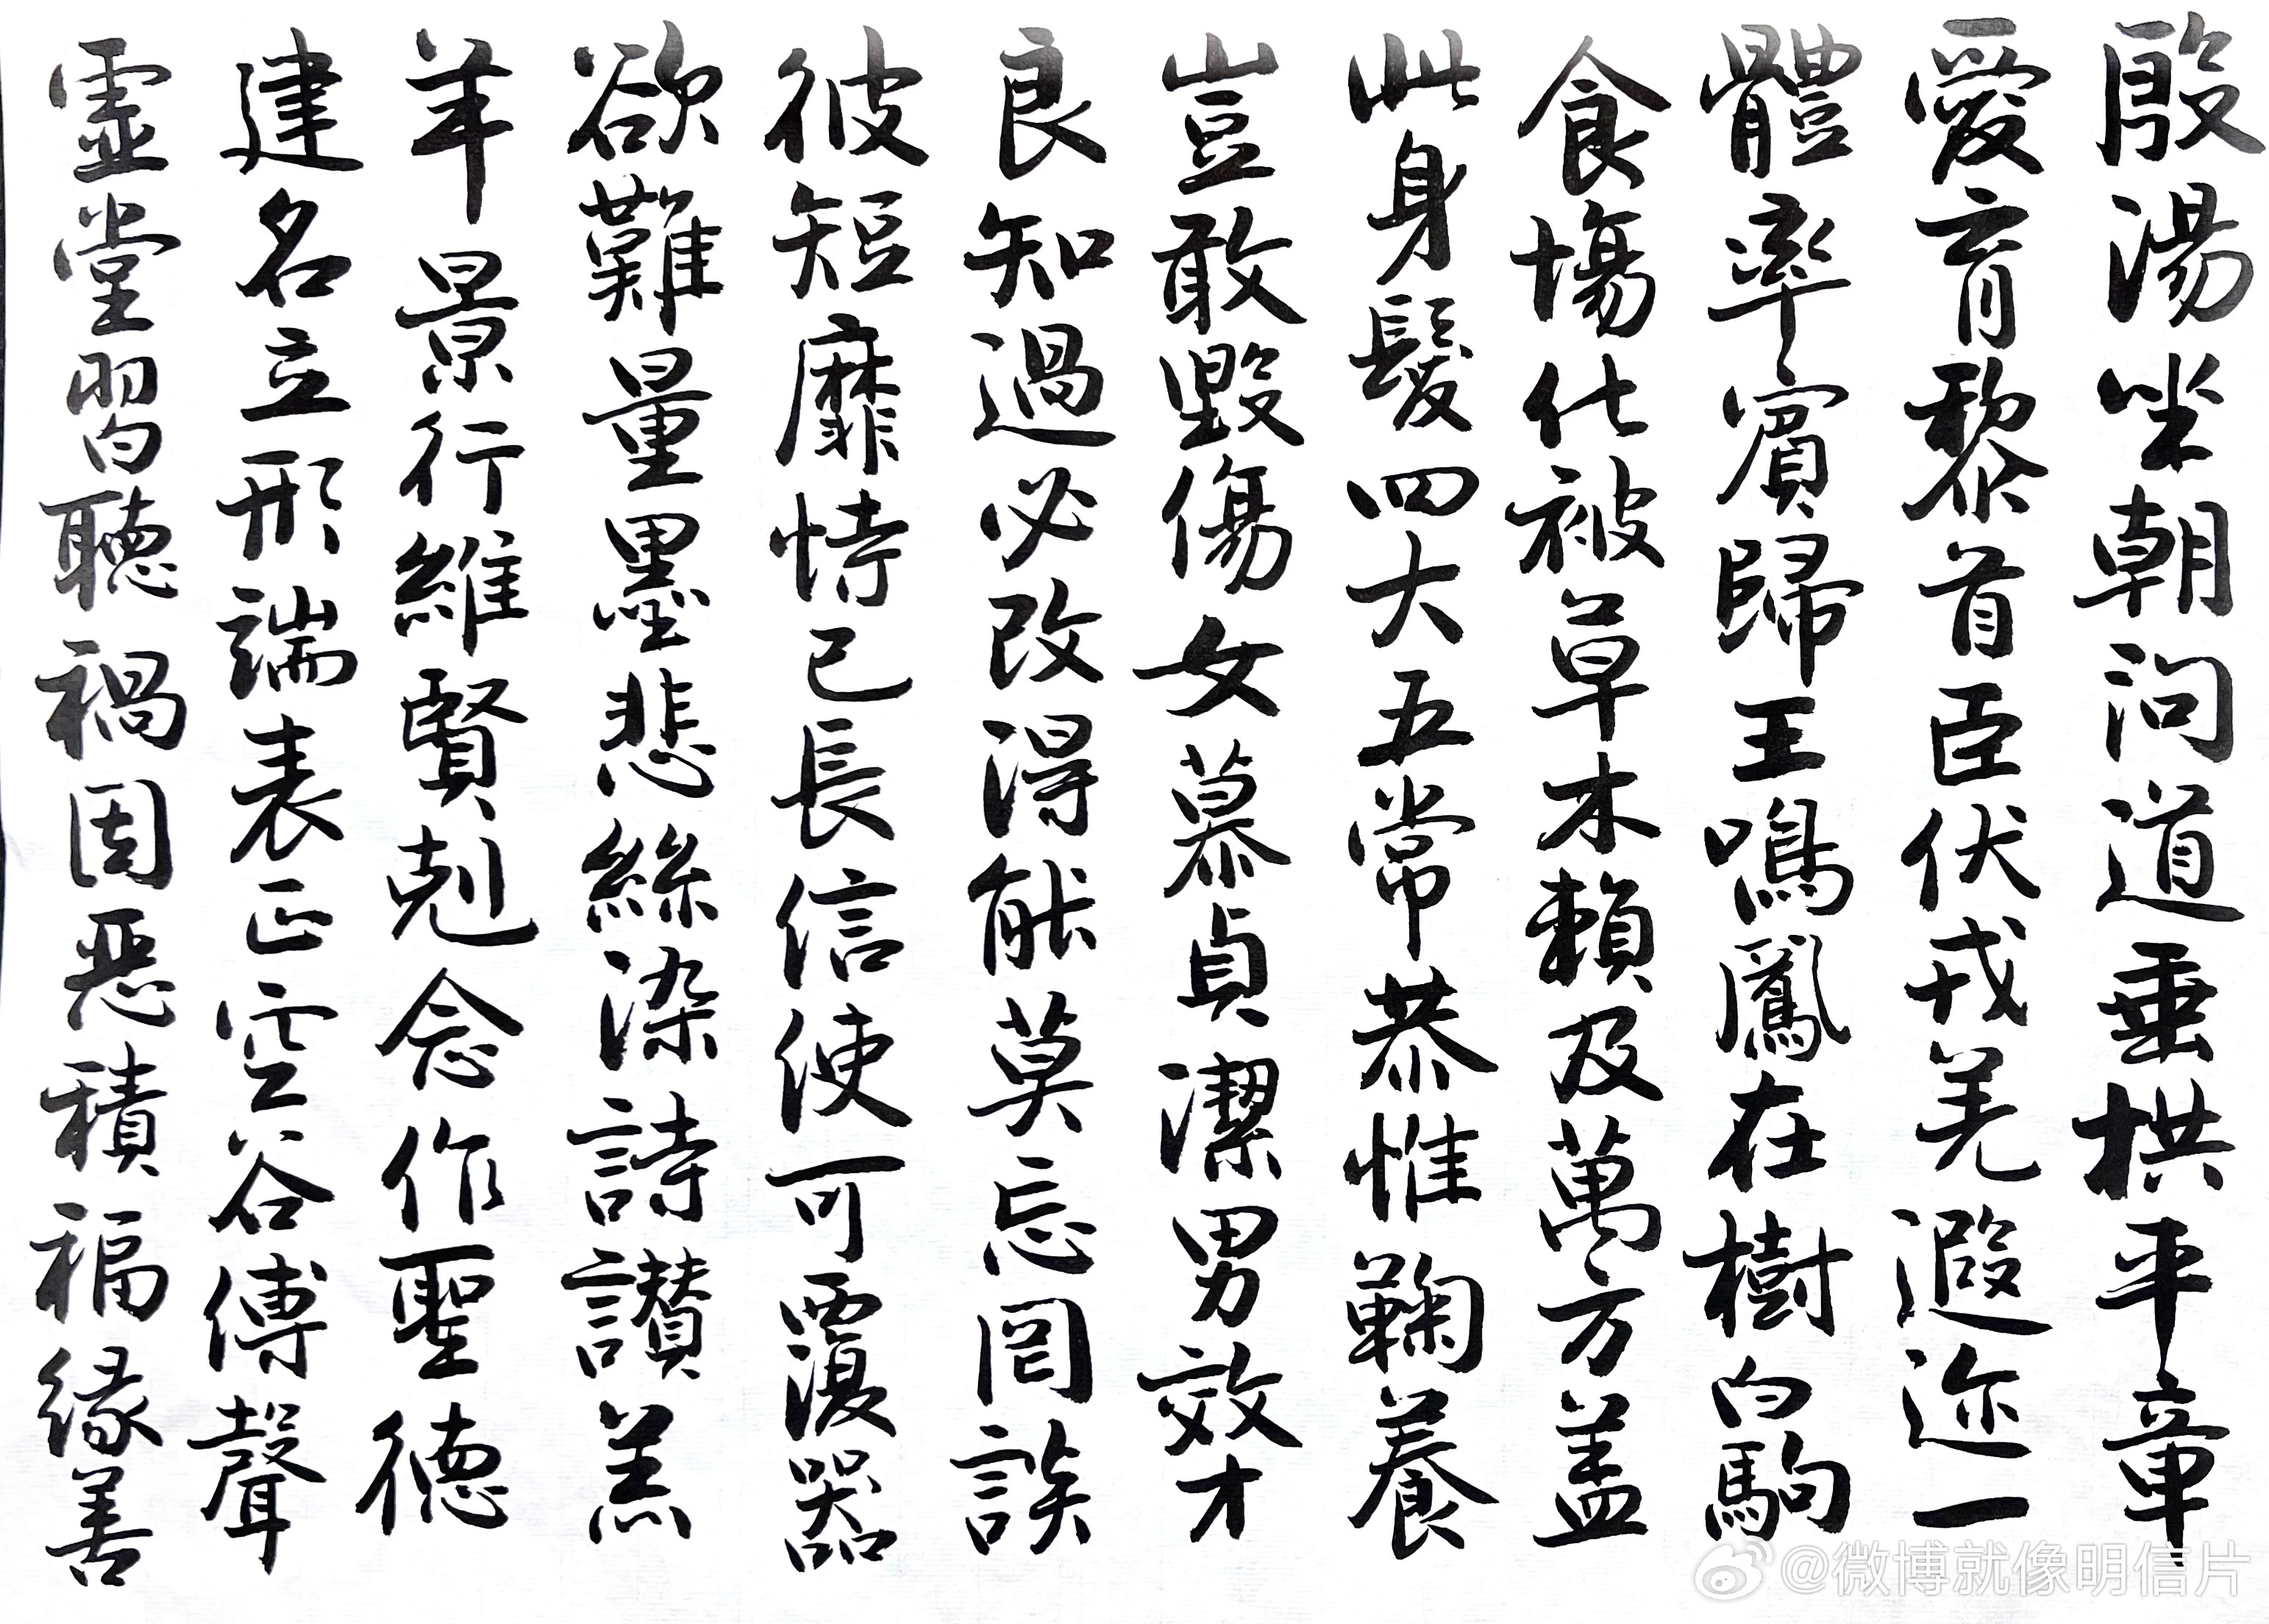 殷湯坐朝問道垂拱平章
愛育黎首臣伏戎羌遐迩一
體率賓歸王鳴鳳在樹白駒
食場化被草木賴及萬方蓋
此身髮四大五常恭惟鞠養
豈敢毀傷女慕貞潔男效才
良知過必改得能莫忘罔談
彼短靡恃己長信使可覆器
欲難量墨悲絲染詩讚羔
羊景行維賢剋念作聖德
建名立形端表正空谷傳聲
虛堂習聽禍因惡積福緣善
@微博就像明信片